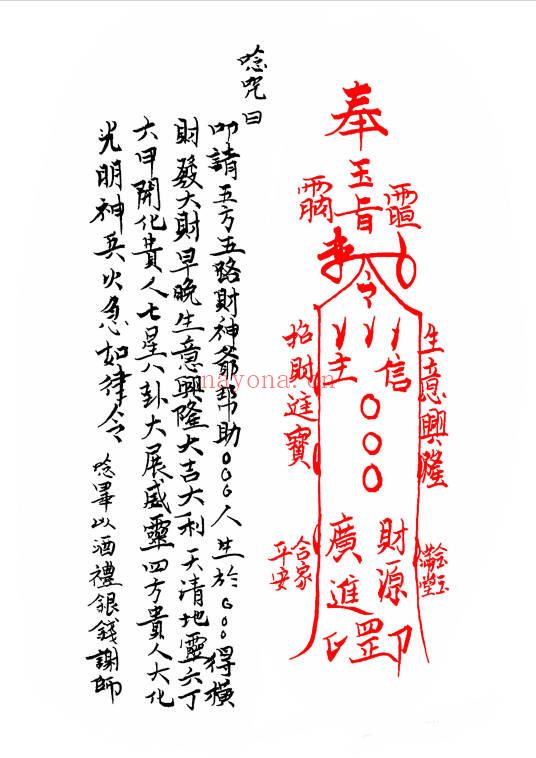 唸咒曰
叩請五方五路財神爺幫助000人生於000得橫
財發大財早晚生意興隆大吉大利天清地靈六丁
六甲開化貴人七星八卦大展威靈四方貴人大化
光明神兵火急如律令 唸畢以酒禮銀錢謝師
奉
玉旨
令
信主
000
財源廣進
生意興隆
招財進寶
金玉滿堂
合家平安
nayona.cn